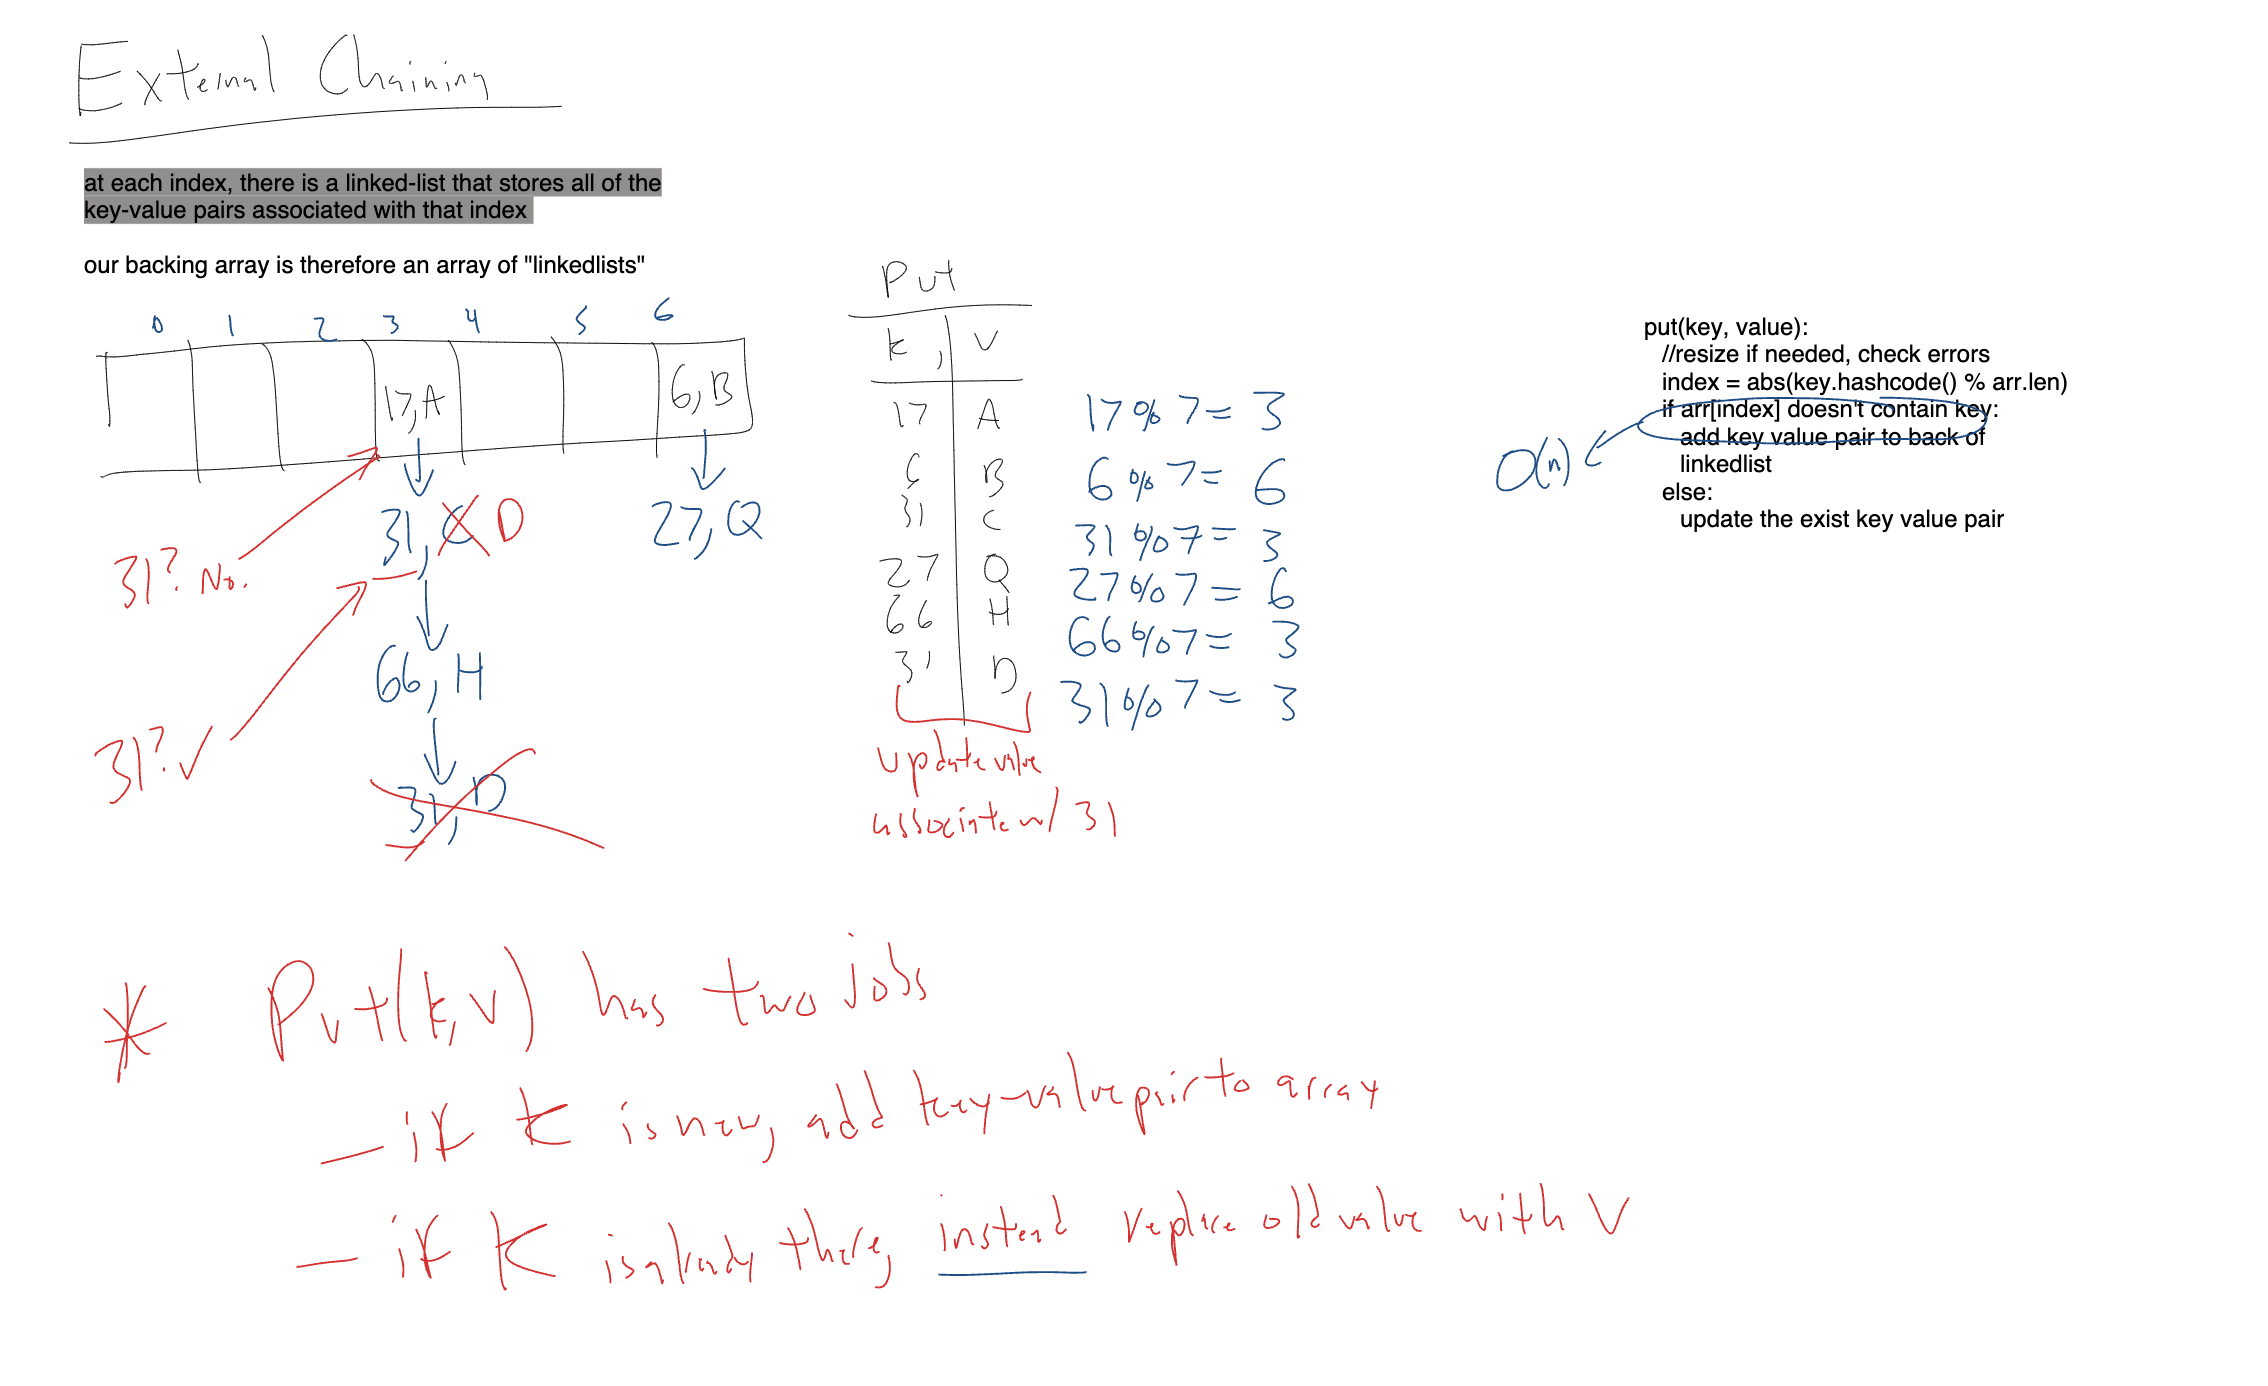 External Chaining
at each index, there is a linked-list that stores all of the
key-value pairs associated with that index
our backing array is therefore an array of "linkedlists"
0 1 2 3 4 5 6
17,A 6,B
31, C D
27, Q
31? No.
66, H
31? ✓
31, D
Put
k, V
17 A 17 % 7 = 3
6 B 6 % 7 = 6
31 C 31 % 7 = 3
27 Q 27 % 7 = 6
66 H 66 % 7 = 3
31 D 31 % 7 = 3
update value
associate w/ 31
put(key, value):
//resize if needed, check errors
index = abs(key.hashcode() % arr.len)
if arr[index] doesn't contain key:
add key value pair to back of
linkedlist
else:
update the exist key value pair
O(n)
* Put(k,v) has two jobs
- if k is new, add key-value pair to array
- if K is already there, instead replace old value with V